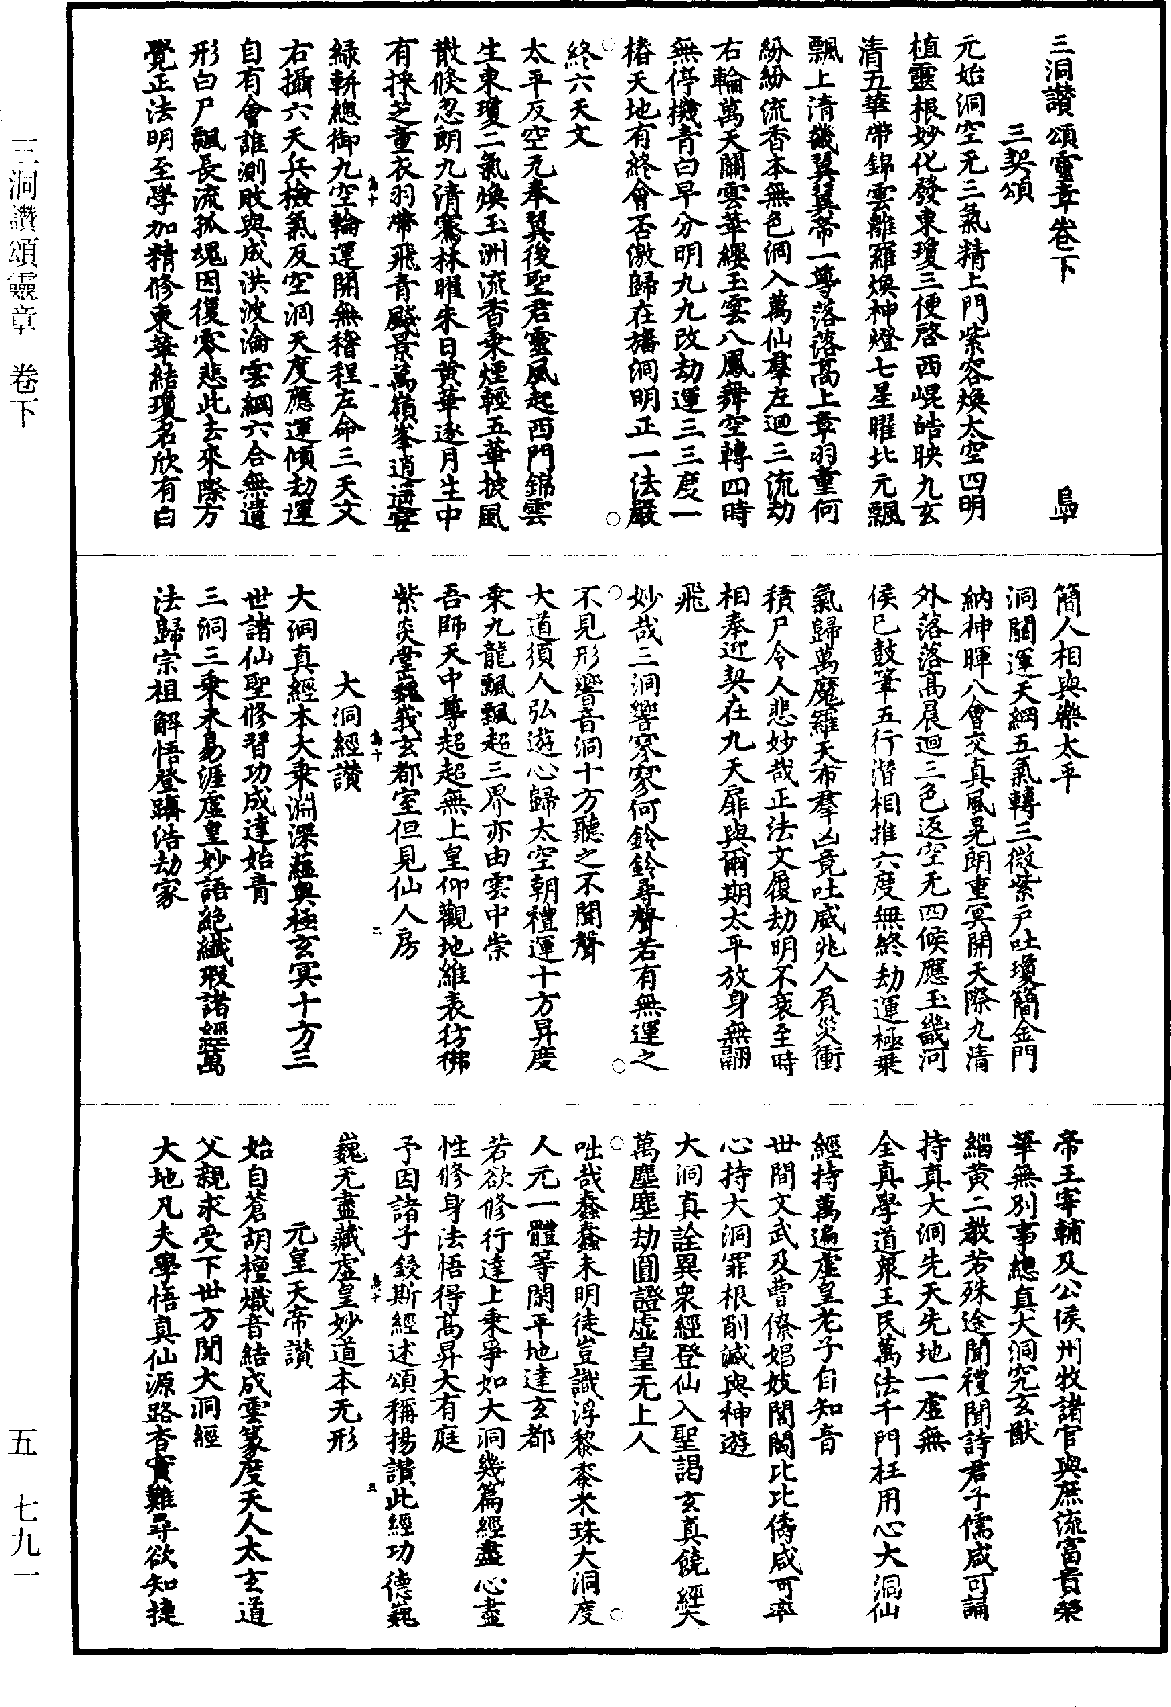 三洞讚頌靈章卷下
三契頌
元始洞空无三氣精上門紫容煥太空四明
植靈根妙化發東瓊三便啓西崐皓映九玄
清五華帶錦雲離羅煥神燈七星曜北元飄
飄上清畿翼翼帝一尊落落高上章羽童何
紛紛流香本無色洞入萬仙羣左迴三流劫
右輪萬天關雲華纓玉雲八鳳舞空轉四時
無停機青白早分明九九改劫運三三度一
椿天地有終會否激歸在旛洞明正一法嚴
終六天文
太平反空无奉翼後聖君靈風起西門錦雲
生東瓊二氣煥玉洲流香乘煙輕五華披風
散倏忽朗九清騫林曜朱日黃華逐月生中
有採芝童衣羽帶飛青飈景萬嶺峯逍遙宴
綠軿總御九空輪運開無稽程左命三天文
右攝六天兵檢氣反空洞天度應運傾劫運
自有會誰測敗與成洪波淪雲綱六合無遺
形白尸飄長流孤魂因復零悲此去來際方
覺正法明至學加精修東華結瓊名欣有白
簡人相與樂太平
洞關運天綱五氣轉三微紫戶吐瓊簡金門
納神暉八會交真風晃朗重冥開天際九清
外落落高晨迴三色返空无四候應玉畿河
侯已鼓筆五行潛相推六度無終劫運極乘
氣歸萬魔羅天布羣凶竟吐威兆人負災衝
積尸令人悲妙哉正法文履劫明不衰至時
相奉迎契在九天扉與爾期太平放身無翮
飛
妙哉三洞響寥寥何鈴鈴尋聲若有無運之
不見形響音洞十方聽之不聞聲
大道須人弘遊心歸太空朝禮運十方昇度
乘九龍飄飄超三界亦由雲中崇
吾師天中尊超超無上皇仰觀地維表彷彿
紫炎堂巍峩玄都室但見仙人房
大洞經讚
大洞真經本大乘淵深蘊奧極玄冥十方三
世諸仙聖修習功成達始青
三洞三乘未易涯虛皇妙語絕纖瑕諸經萬
法歸宗祖解悟登躋浩劫家
帝王宰輔及公侯州牧諸官與庶流富貴榮
華無別事總真大洞究玄猷
緇黃二教若殊途聞禮聞詩君子儒咸可誦
持真大洞先天先地一虛無
全真學道眾王民萬法千門枉用心大洞仙
經持萬遍虛皇老子自知音
世間文武及曹僚娼妓閭閻比比儔咸可率
心持大洞罪根削滅與神遊
大洞真詮異衆經登仙入聖謁玄真饒經六
萬塵塵劫圓證虛皇无上人
咄哉蠢蠢未明徒豈識浮黎黍米珠大洞度
人元一體等閑平地達玄都
若欲修行達上乘爭如大洞幾篇經盡心盡
性修身法悟得高昇大有庭
予因諸子鋟斯經述頌稱揚讚此經功德巍
巍无盡藏虛皇妙道本无形
元皇天帝讚
始自蒼胡檀熾音結成雲篆度天人太玄道
父親求受下世方聞大洞經
大地凡夫學悟真仙源路杳實難尋欲知捷
三洞讚頌靈章 卷下
五 七九一